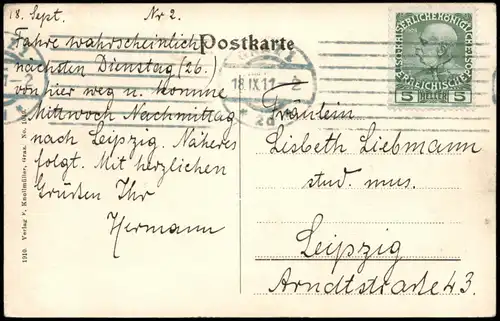 18. Sept. Nr 2.
Fahre wahrscheinlich
nächsten Dienstag (26.)
von hier weg u. komme
Mittwoch Nachmittag
nach Leipzig. Näheres
folgt. Mit herzlichen
Grüßen Ihr
Hermann
Postkarte
18.IX.11
2
2d
5 HELLER 5
Fräulein
Lisbeth Liebmann
stud. mus.
Leipzig
Arndtstrasse 43.
1910. Verlag v. Knollmüller, Graz. No.